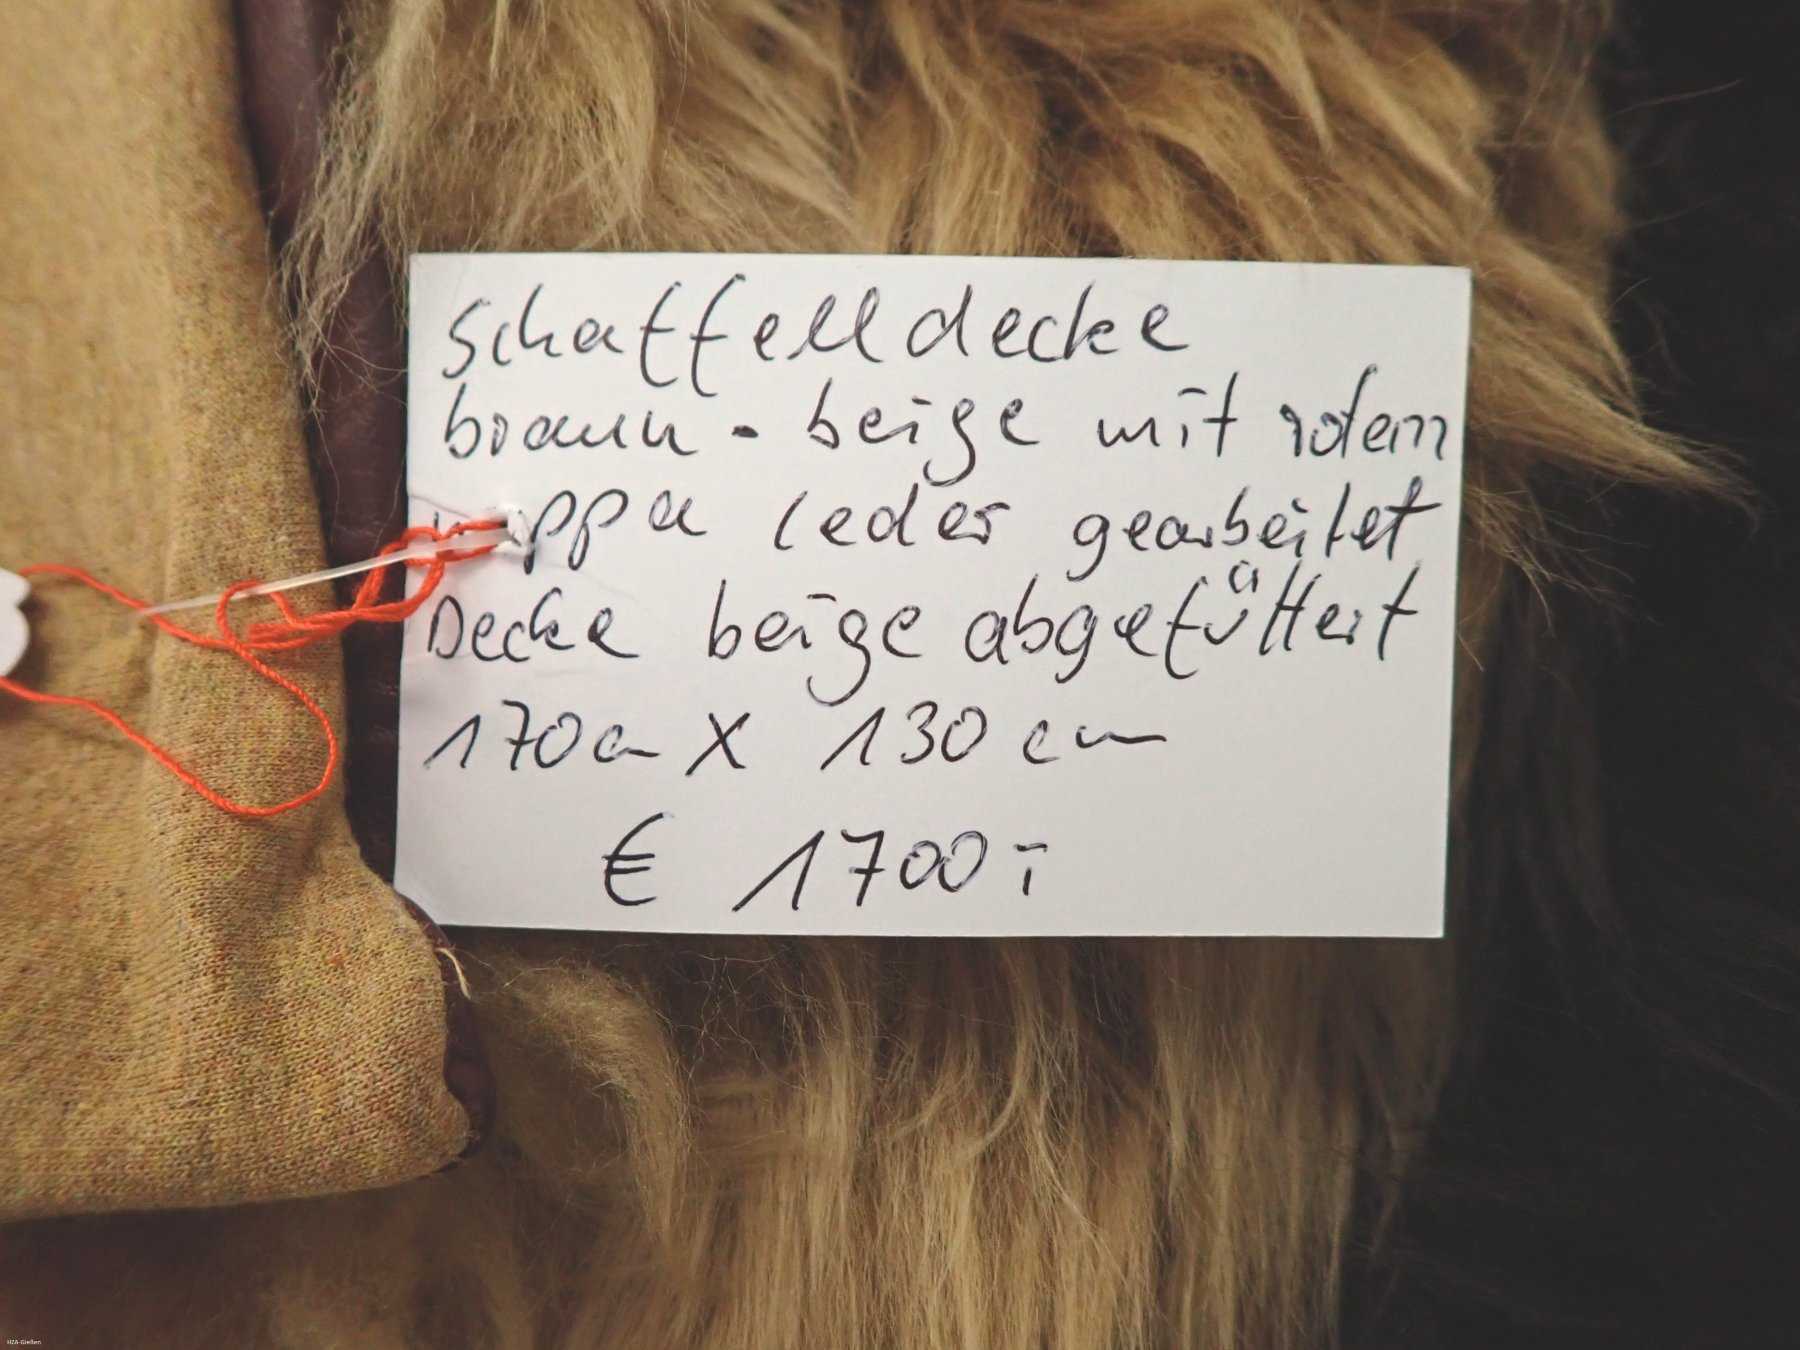 Schaffelldecke
braun - beige mit rotem
nappa leder gearbeitet
Decke beige abgefüttert
170cm X 130 cm
€ 1700,-
HZA-Gießen